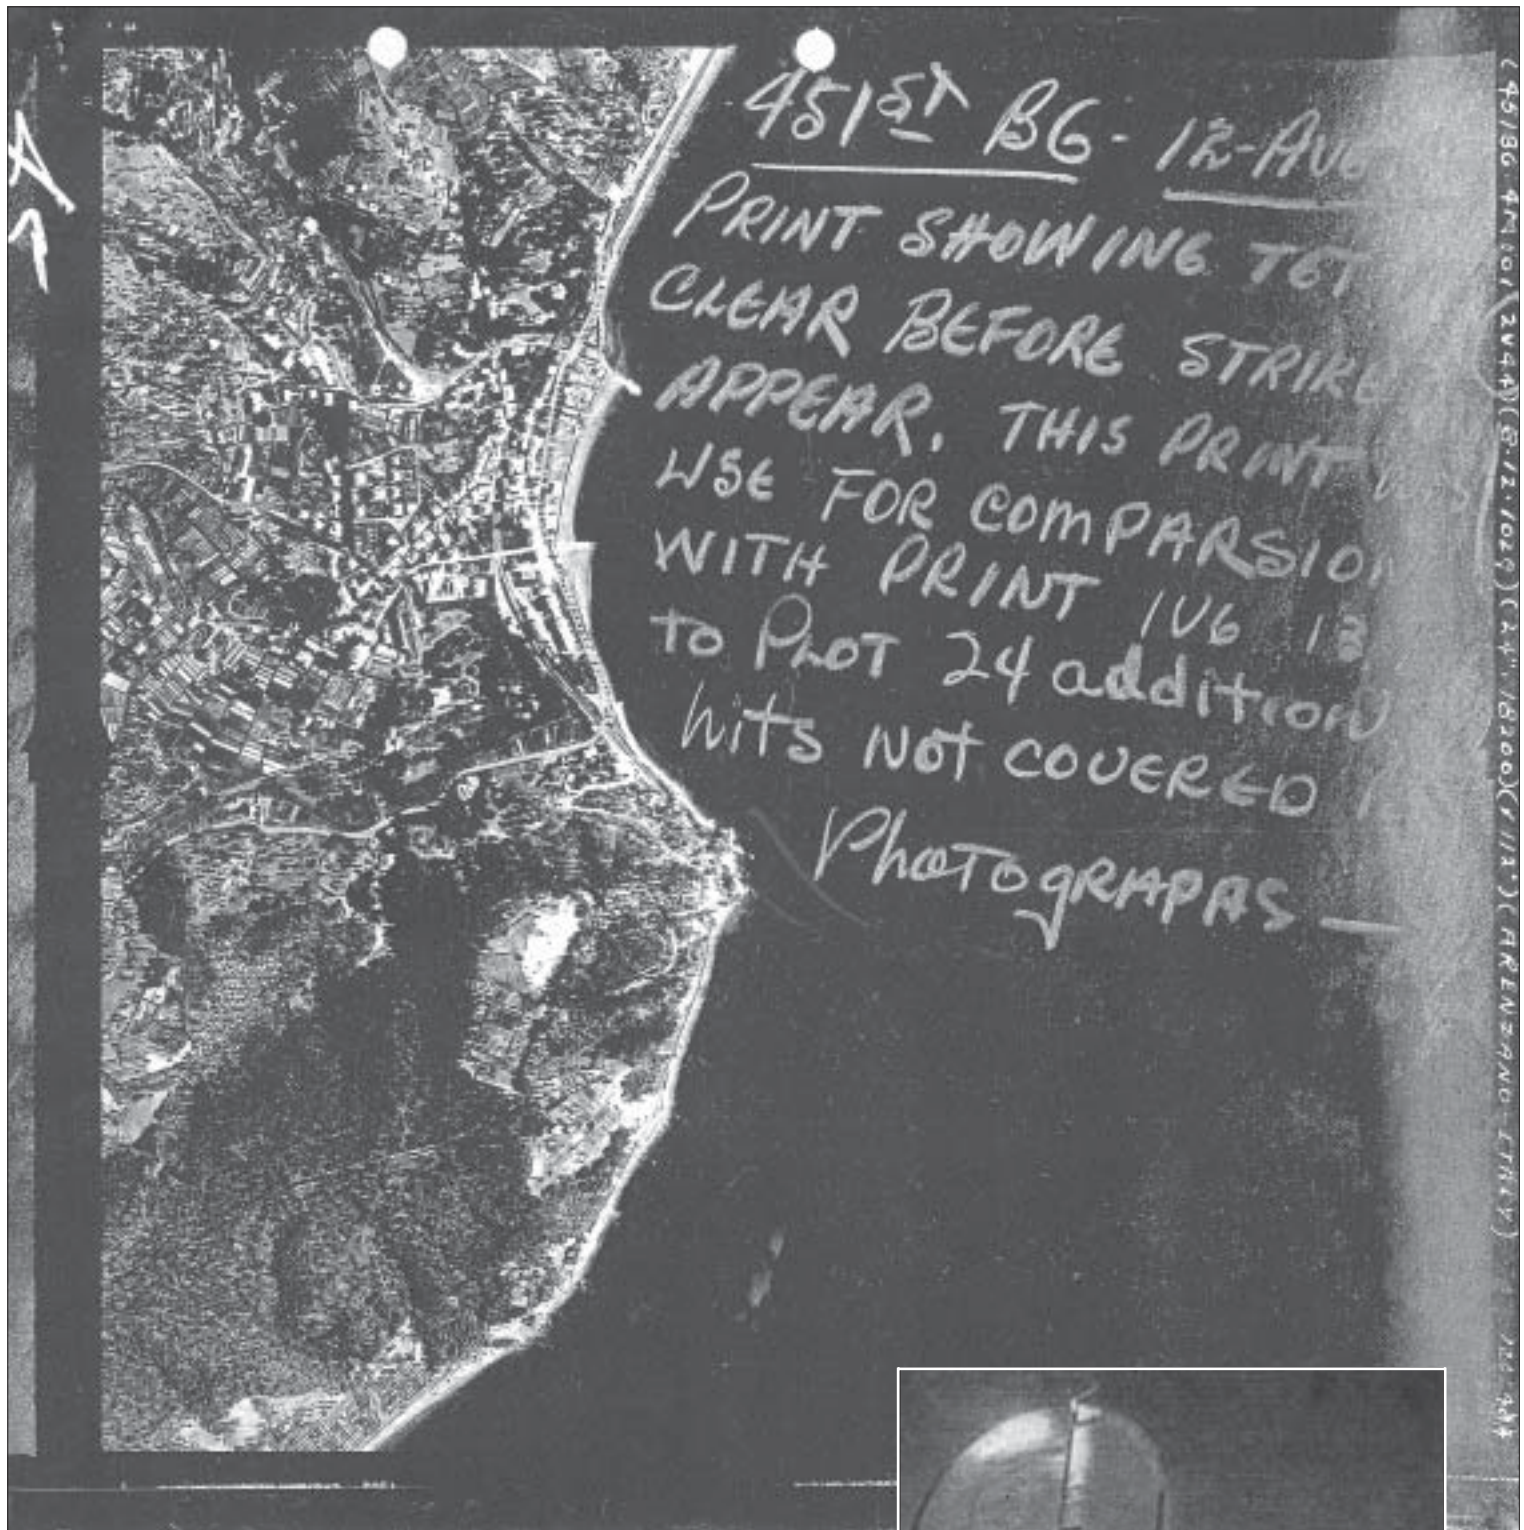 451ST BG - 12-AUG
PRINT SHOWING TGT
CLEAR BEFORE STRIKE
APPEAR. THIS PRINT
USE FOR COMPARSION
WITH PRINT 1V6 13
to PLOT 24 addition
hits Not COVERED
PhotoGRAPAS —
(451BG 4M101 (2N44) (8-12-1029) (24"-18200) (ARENZANO-ITALY)